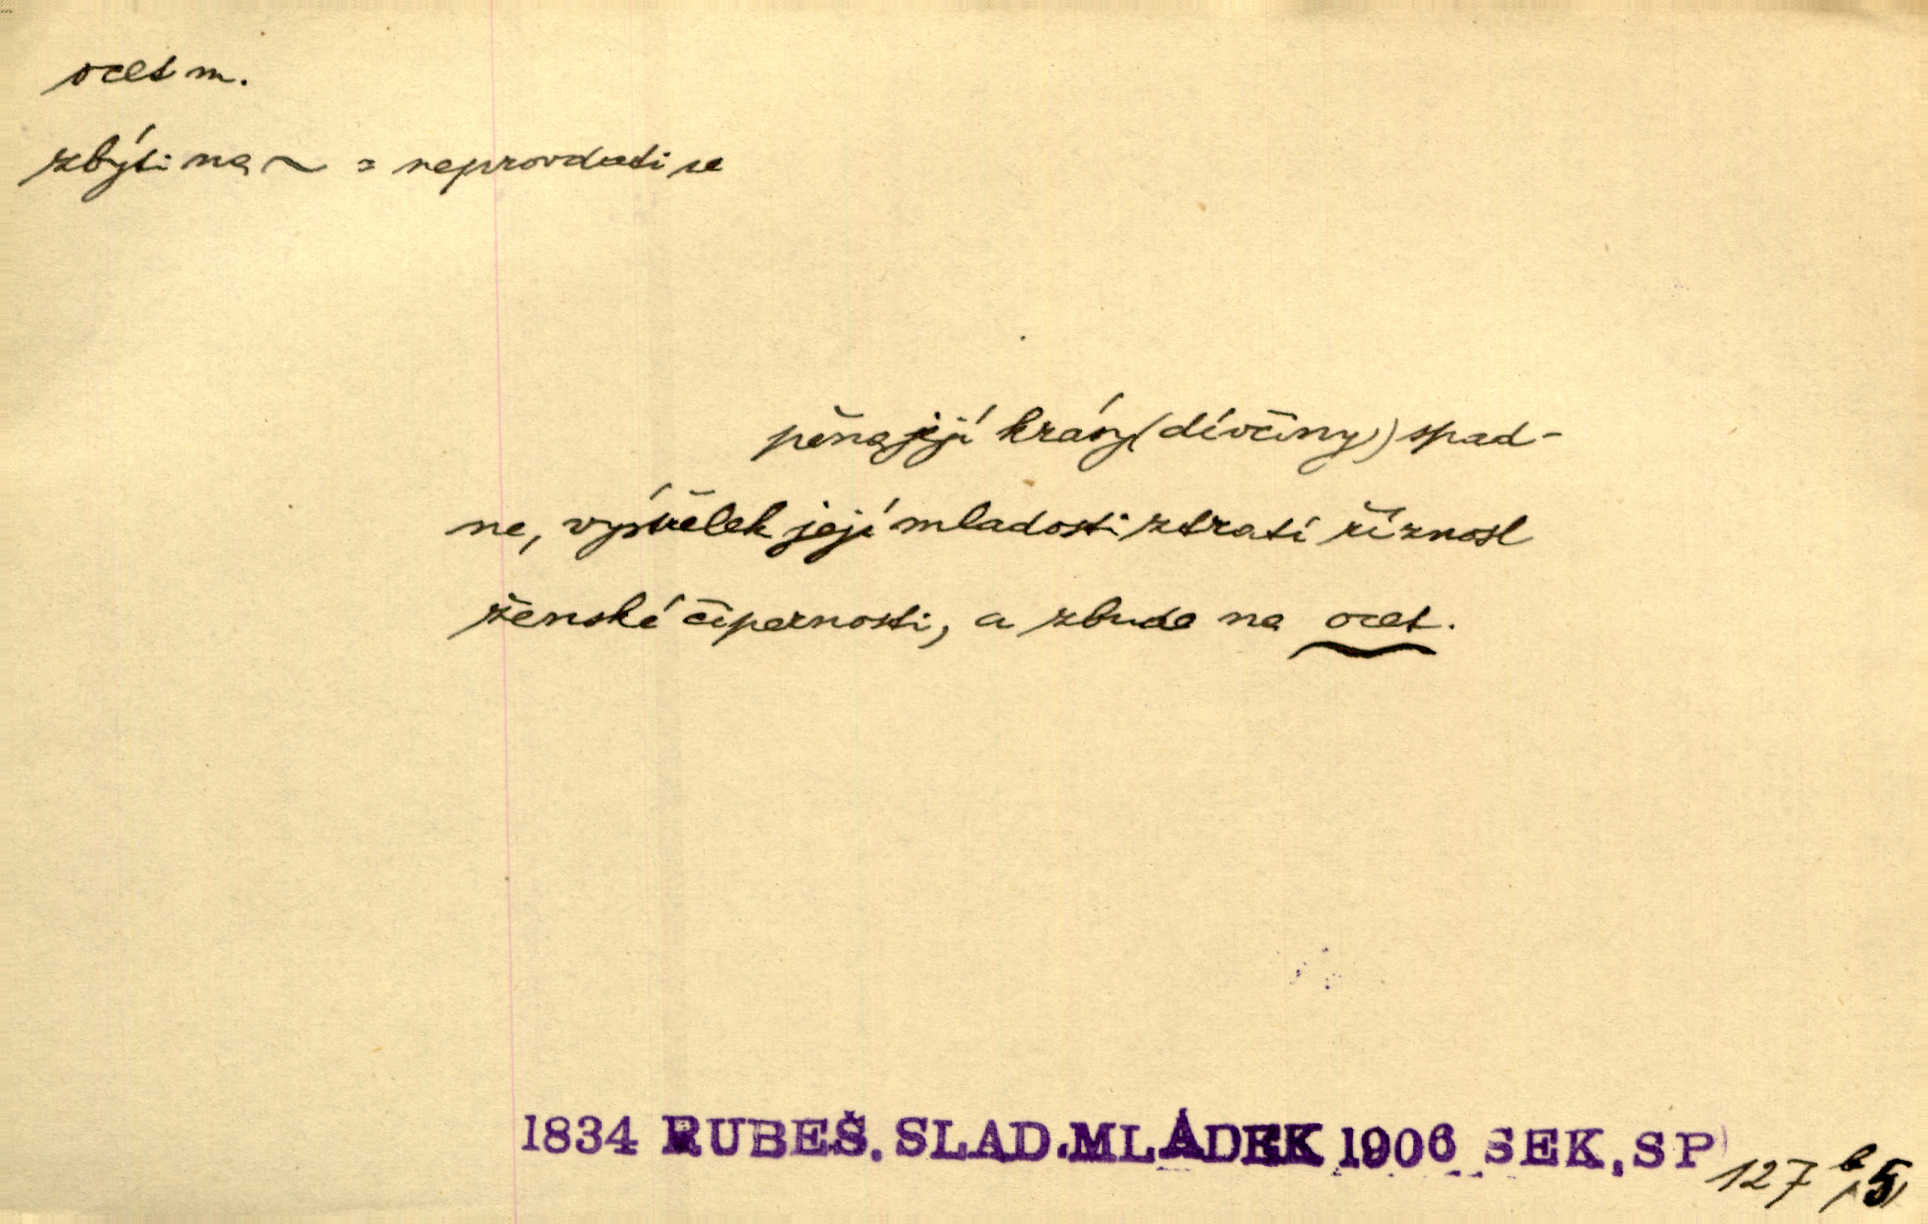 ocet m.
zbýti na ~ = neprovdati se
pěna její krásy (dívčiny) spad-
ne, výstřelek její mladosti ztratí říznost
ženské čipernosti, a zbude na ocet.
1834 RUBEŠ. SLAD. MLÁDEK 1906 SEK. SP
127